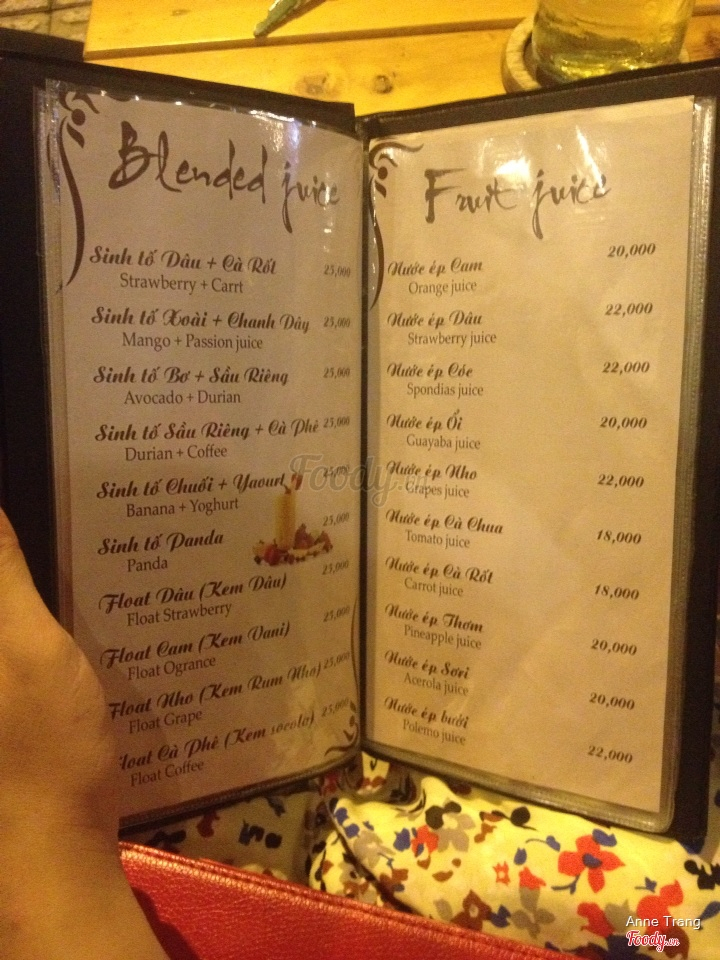 Blended juice
Sinh tố Dâu + Cà Rốt 25,000
Strawberry + Carrt
Sinh tố Xoài + Chanh Dây 25,000
Mango + Passion juice
Sinh tố Bơ + Sầu Riêng 25,000
Avocado + Durian
Sinh tố Sầu Riêng + Cà Phê 25,000
Durian + Coffee
Sinh tố Chuối + Yaourt 25,000
Banana + Yoghurt
Sinh tố Panda 25,000
Panda
Float Dâu (Kem Dâu) 25,000
Float Strawberry
Float Cam (Kem Vani) 25,000
Float Ogrance
Float Nho (Kem Rum Nho) 25,000
Float Grape
Float Cà Phê (Kem socola) 25,000
Float Coffee
Fruit juice
Nước ép Cam 20,000
Orange juice
Nước ép Dâu 22,000
Strawberry juice
Nước ép Cóc 22,000
Spondias juice
Nước ép Ổi 20,000
Guayaba juice
Nước ép Nho 22,000
Grapes juice
Nước ép Cà Chua 18,000
Tomato juice
Nước ép Cà Rốt 18,000
Carrot juice
Nước ép Thơm 20,000
Pineapple juice
Nước ép Sơri 20,000
Acerola juice
Nước ép bưởi 22,000
Polemo juice
Foody.vn
Anne Trang
Foody.vn